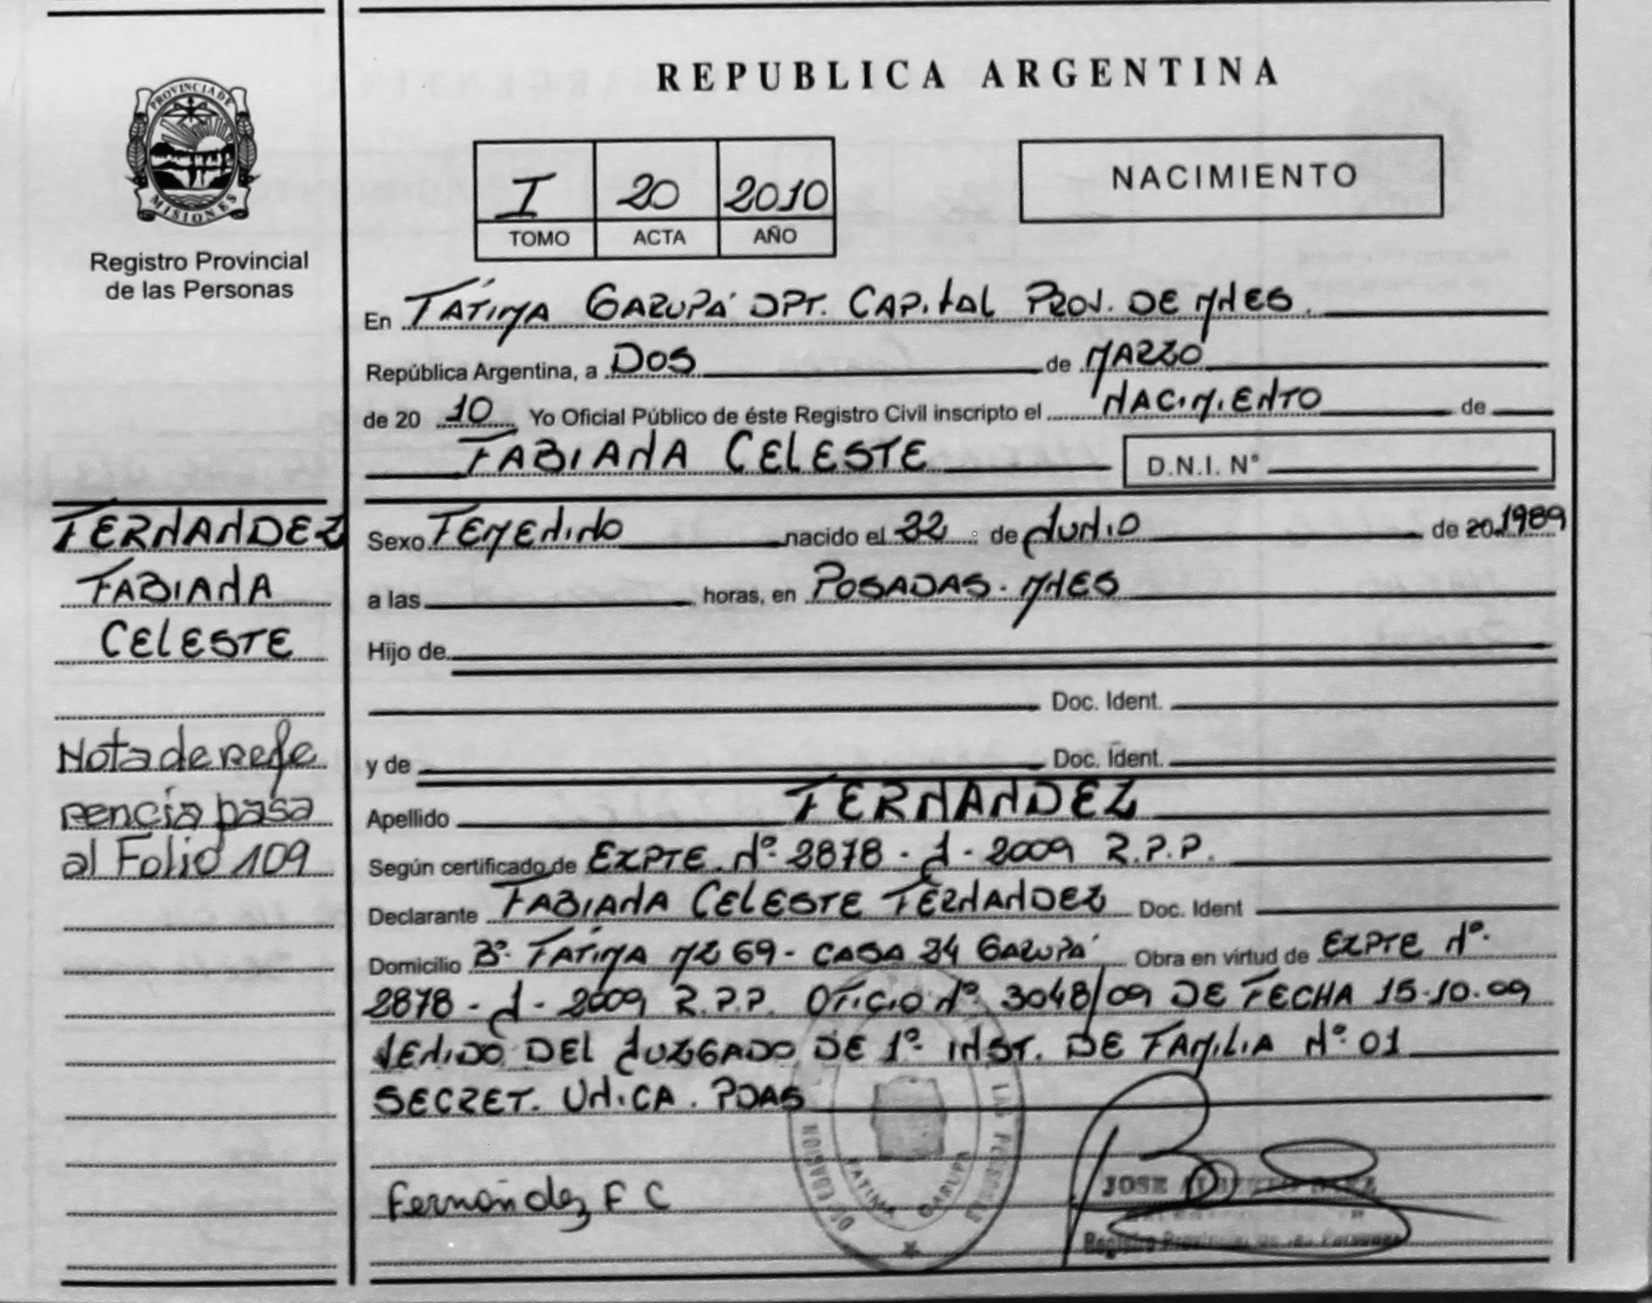 REPUBLICA ARGENTINA
PROVINCIA DE
MISIONES
Registro Provincial
de las Personas
I 20 2010
TOMO ACTA AÑO
NACIMIENTO
En FÁTIMA GARUPÁ DPT. CAPITAL PROV. DE MNES.
República Argentina, a DOS de MARZO
de 20 10 Yo Oficial Público de éste Registro Civil inscripto el NACIMIENTO de
FABIANA CELESTE D.N.I. N°
FERNANDEZ
FABIANA
CELESTE
Nota de refe
rencia pasa
al Folio 109
Sexo FEMENINO nacido el 22 de JUNIO de 20 1989
a las horas, en POSADAS. MNES
Hijo de
Doc. Ident.
y de Doc. Ident.
Apellido FERNANDEZ
Según certificado de EXPTE. Nº 2878 - J - 2009 R.P.P.
Declarante FABIANA CELESTE FERNANDEZ Doc. Ident
Domicilio Bº FÁTIMA MZ 69 - CASA 34 GARUPÁ Obra en virtud de EXPTE Nº
2878 - J - 2009 R.P.P. OFICIO Nº 3048/09 DE FECHA 15-10-09
VENIDO DEL JUZGADO DE 1º INST. DE FAMILIA Nº 01
SECRET. UNICA. PDAS
Fernández F C
FATIMA GARUPA
LAS PERSONAS
JOSE
Registro Provincial de las Personas